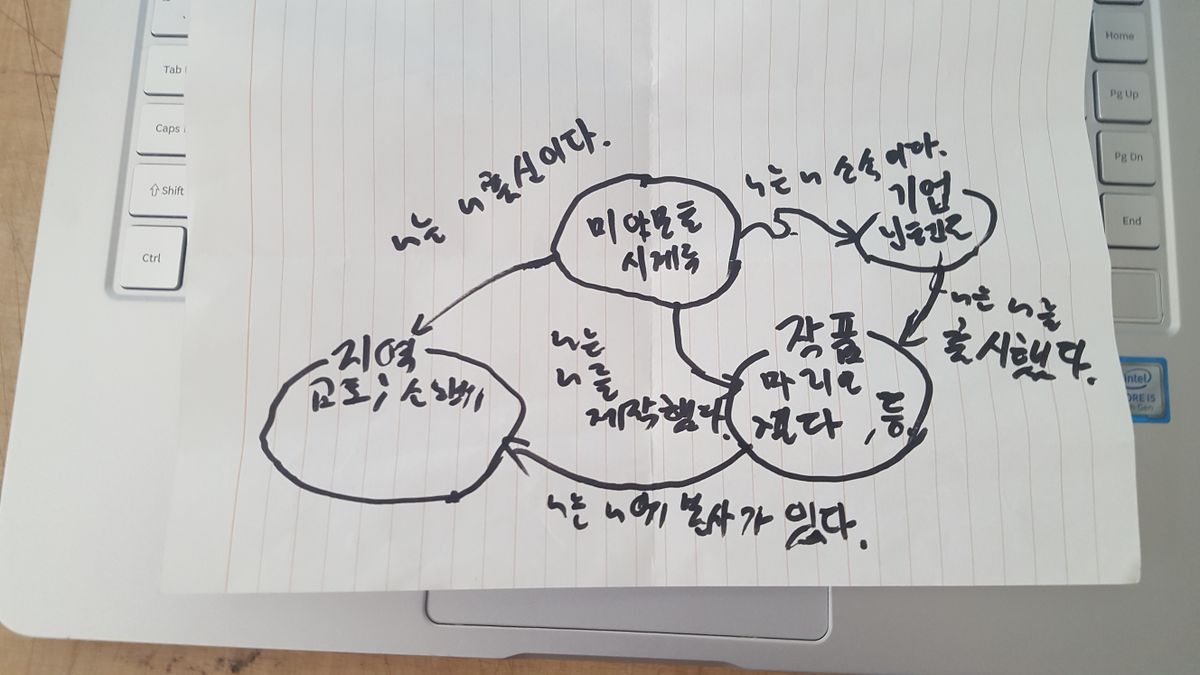 Tab
Caps
⇧ Shift
Ctrl
Home
Pg Up
Pg Dn
End
intel
CORE i5
Gen
~는 ~출신이다.
미야모토
시게루
~는 ~ 소속이다.
기업
닌텐도
~는 ~를
출시했다.
지역
교토,
~는
~를
제작했다.
작품
마리오
젤다, 등.
~는 ~에 본사가 있다.